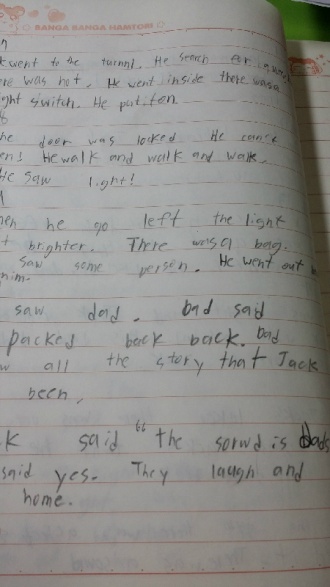 BANGA BANGA HAMTORI
went to the tunnl. He search for a
was hot. He went inside there was a
ght switch. He put ten
he door was locked He can't
en! He walk and walk and walk.
He saw light!
en he go left the light
t brighter. There was a bag.
saw some person. He went out
him.
saw dad. bad said
packed back back. bad
w all the story that Jack
been,
k said "the sorwd is dads
said yes. They laugh and
home.